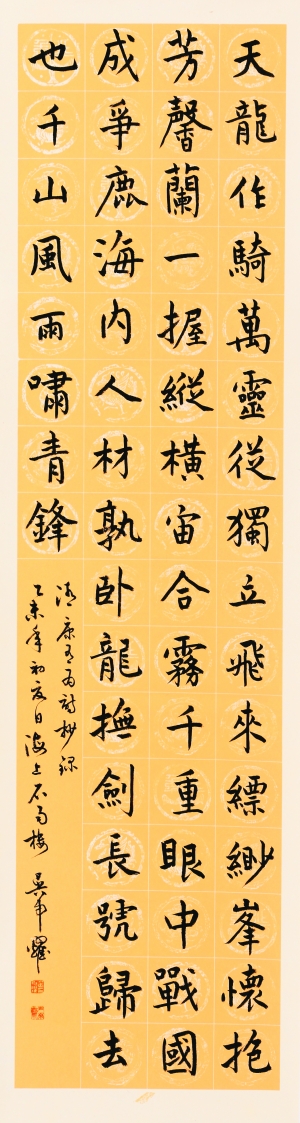 天龍作騎萬靈從獨立飛來縹緲峯懷抱
芳馨蘭一握縱橫宙合霧千重眼中戰國
成爭鹿海內人材孰卧龍撫劍長號歸去
也千山風雨嘯青鋒
清康有為詩抄錄
乙未年初夏日海上